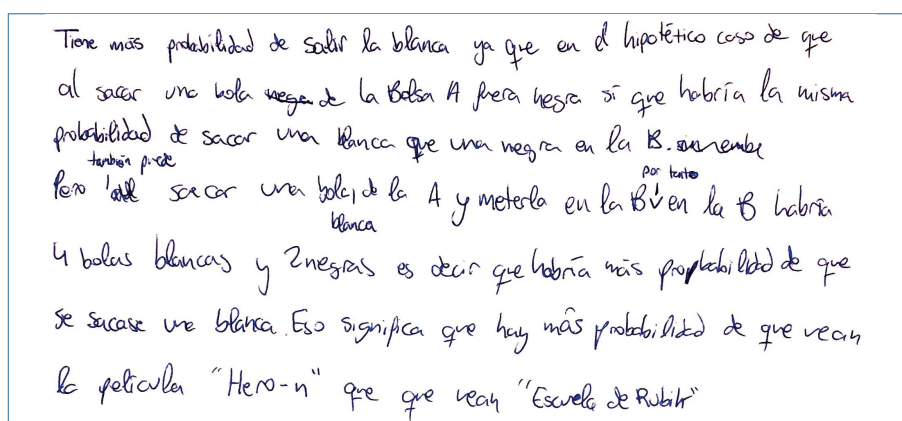 Tiene más probabilidad de salir la blanca ya que en el hipotético caso de que
al sacar una bola de la Bolsa A fuera negra si que habría la misma
probabilidad de sacar una blanca que una negra en la B.
también puede
por tanto
Pero sacar una bola, de la A y meterla en la B en la B habría
blanca
4 bolas blancas y 2 negras es decir que habría más probabilidad de que
se sacase una blanca. Eso significa que hay más probabilidad de que vean
la película "Hero-n" que que vean "Escuela de Rubik"